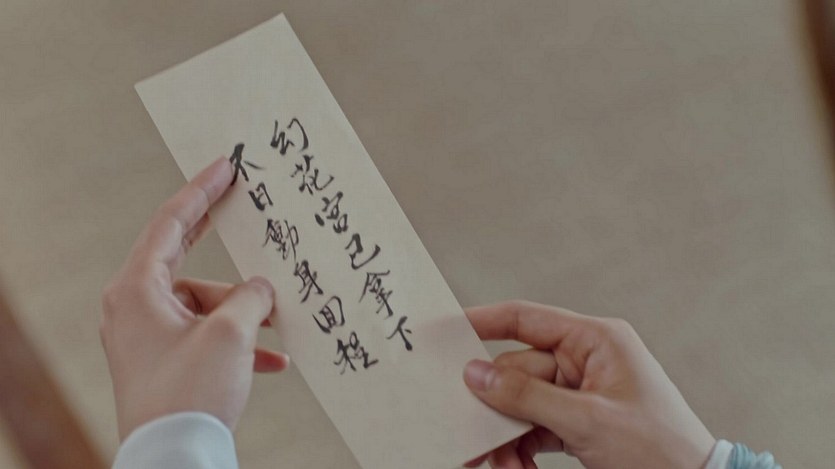 幻花宫已拿下
不日動身回程